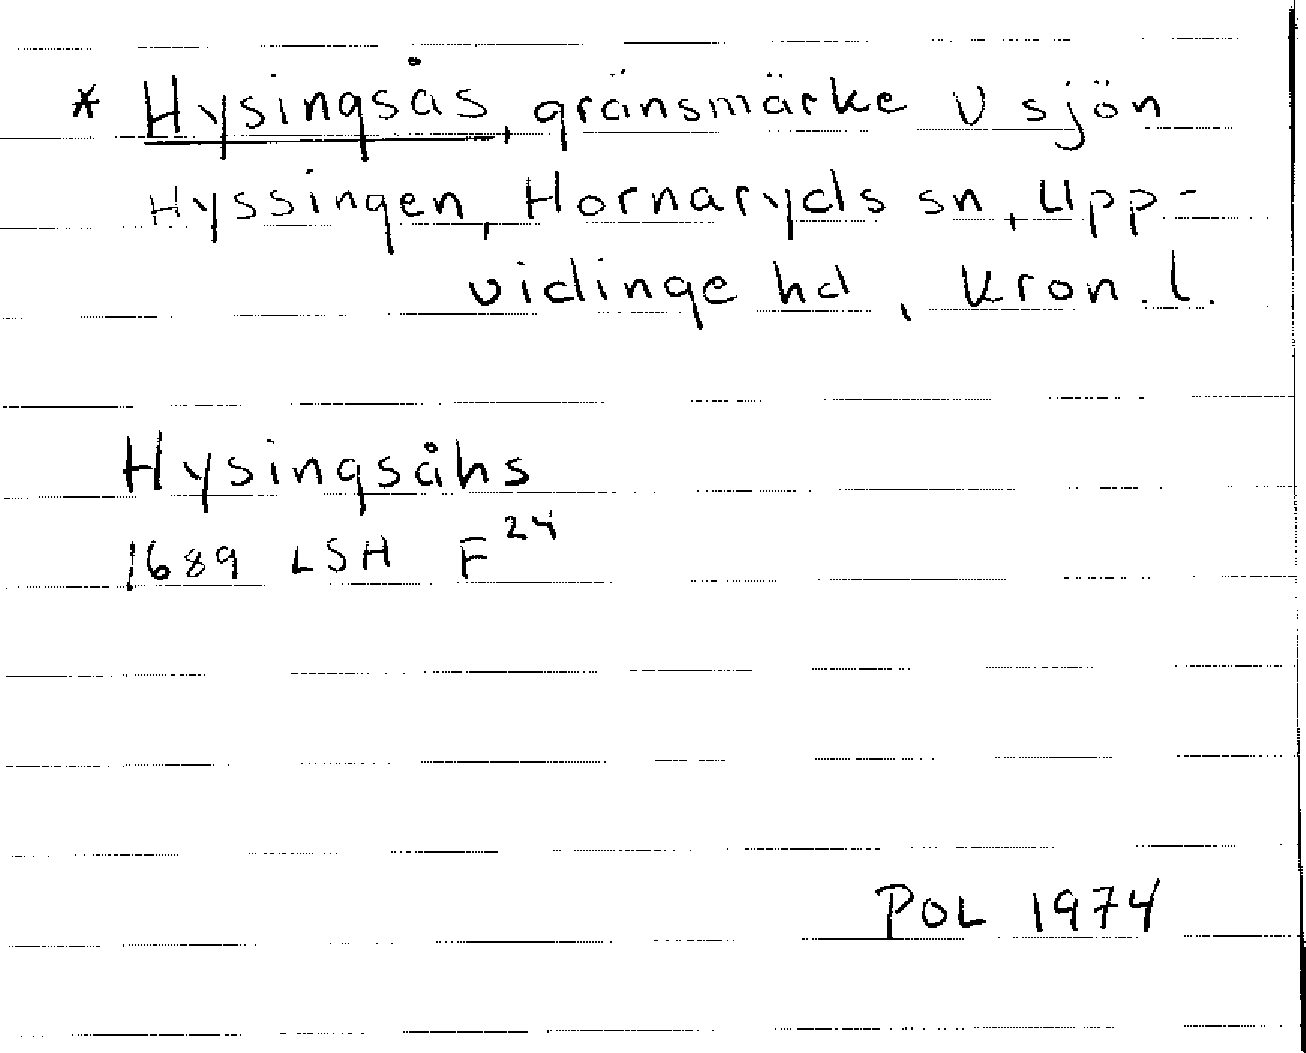 * Hysingsås, gränsmärke V sjön
Hyssingen, Hornaryds sn, Upp-
vidinge hd, Kron. l.
Hysingsåhs
1689 LSH F 24
POL 1974